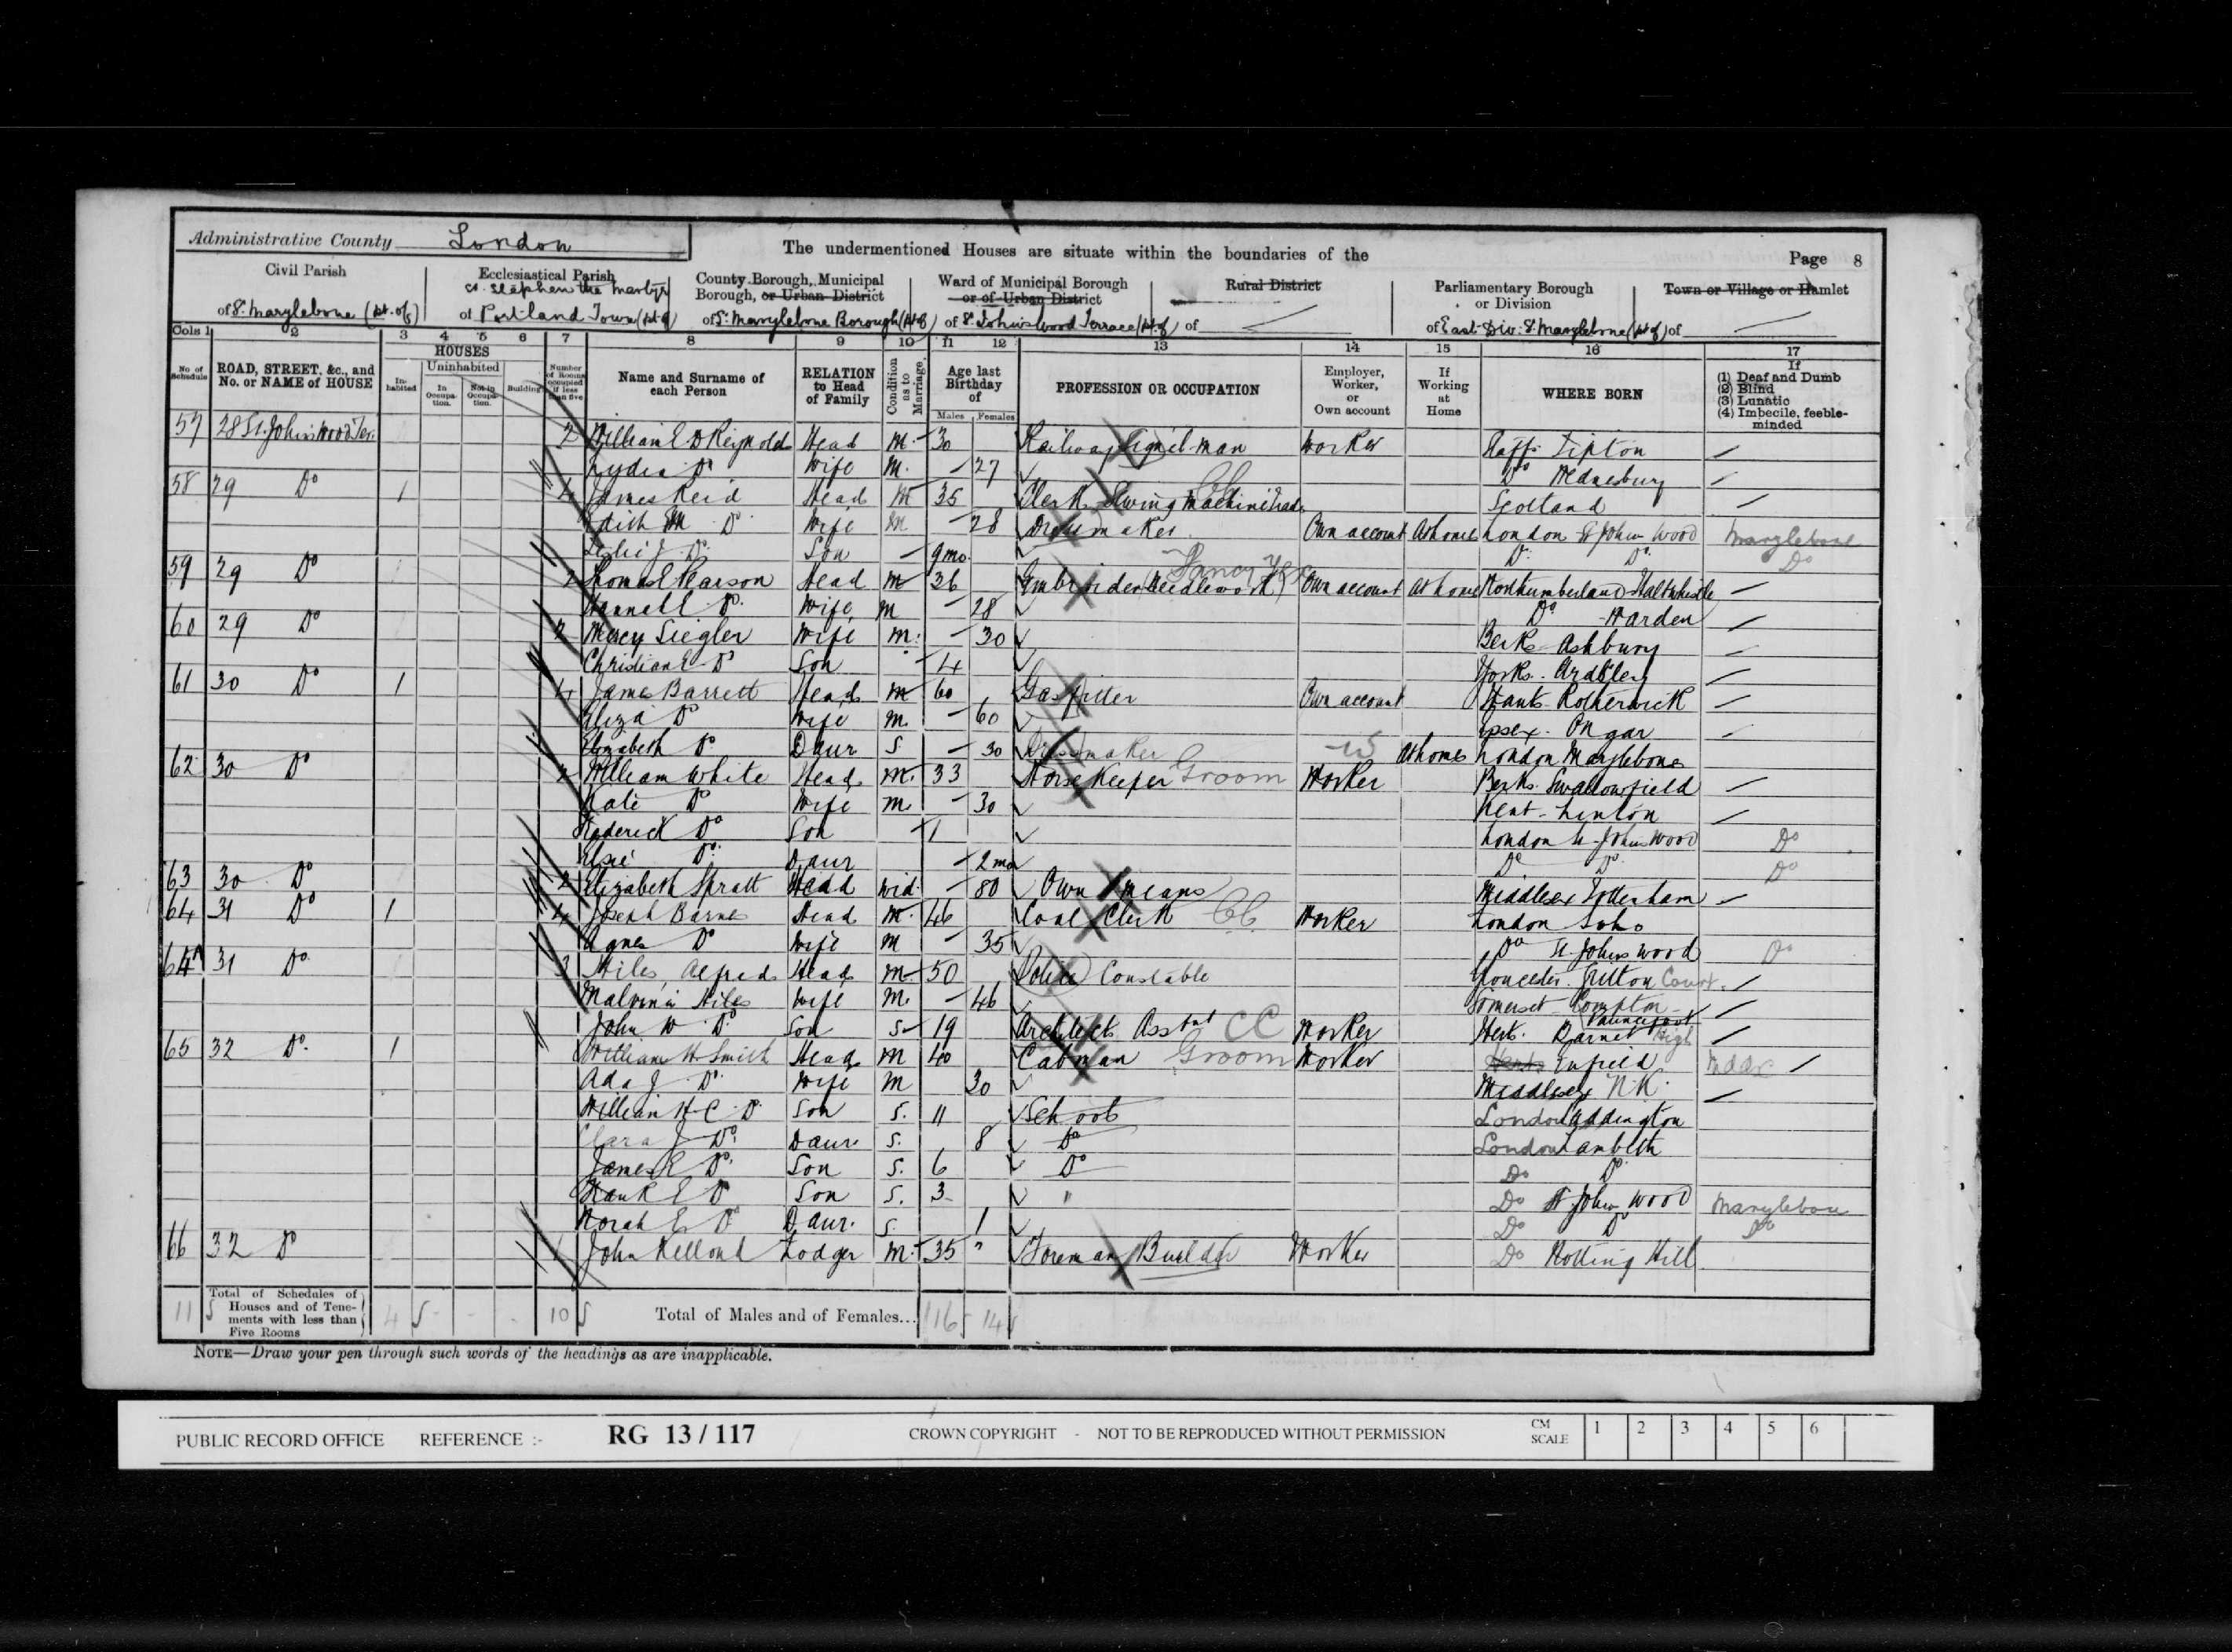 Administrative County London
The undermentioned Houses are situate within the boundaries of the
Page 8
Civil Parish
of St. Marylebone (pt. of)
Ecclesiastical Parish
St. Stephen the Martyr
of Portland Town (pt of)
County Borough, Municipal
Borough, or Urban District
of St. Marylebone Borough (pt of)
Ward of Municipal Borough
or of Urban District
of St. Johns Wood Terrace (pt. of)
Rural District
of
Parliamentary Borough
or Division
of East Div: St Marylebone (pt of)
Town or Village or Hamlet
of
Cols 1 2 3 4 5 6 7 8 9 10 11 12 13 14 15 16 17
No. of Schedule
ROAD, STREET, &c., and
No. or NAME of HOUSE
HOUSES
In-habited
Uninhabited
In Occupa-tion.
Not in Occupa-tion.
Building
Number of Rooms occupied if less than five
Name and Surname of
each Person
RELATION
to Head
of Family
Condition as to Marriage
Age last
Birthday
of
Males Females
PROFESSION OR OCCUPATION
Employer,
Worker,
or
Own account
If
Working
at
Home
WHERE BORN
If
(1) Deaf and Dumb
(2) Blind
(3) Lunatic
(4) Imbecile, feeble-
minded
57 28 St. John's Wood Ter. 2 William E D Reynolds Head M 30 Railway Signal-man Worker Staffs Tipton
Lydia Do Wife M. 27 Do Wednesbury
58 29 Do 1 4 James Reid Head M 35 Clerk Sewing Machine Trade Scotland
Edith M Do Wife M 28 Dressmaker Own account At home London St Johns Wood Marylebone
Leslie J Do Son 9 mo. Do Do Do
59 29 Do 2 Thomas E Pearson Head M 26 Embroider (Needlework) Fancy Own account At home Northumberland Haltwhistle
Do Wife M 28 Do Warden
60 29 Do 2 Mercy Siegler Wife M. 30 Berks Ashbury
Christian E Do Son 4 Yorks. Ardsley
61 30 Do 1 4 James Barrett Head M 60 Gasfitter Own account Hants Rotherwick
Eliza Do Wife M. 60 Essex. Ongar
Elizabeth Do Daur S 30 Dressmaker W At home London Marylebone
62 30 Do 2 William White Head M. 33 Horse Keeper Groom Worker Berks. Swallowfield
Kate Do Wife M 30 Kent - Linton
Roderick Do Son 1 London St Johns Wood Do
Elsie Do Daur 2 mo Do Do Do
63 30 Do 2 Elizabeth Spratt Head Wid 80 Own means Middlesex Tottenham
64 31 Do 1 4 Joseph Barnes Head M. 46 Coal Clerk CC Worker London Soho
Agnes Do Wife M 35 Do St. Johns Wood Do
64A 31 Do 3 Hiles, Alfred Head M 50 Police Constable Gloucester. Court.
Malvina Hiles Wife M. 46 Somerset Compton Pauncefoot
John W Do Son S 19 Architects Asstnt CC Worker Herts. Barnet High
65 32 Do 1 William H Smith Head M 40 Cabman Groom Worker Enfield Mddx
Ada J Do Wife M 30 Middlesex N.K.
William H C Do Son S. 11 School London Paddington
Clara J Do Daur. S. 8 Do London Lambeth
James E Do Son S. 6 Do Do Do
Frank E Do Son S. 3 " Do St Johns Wood Marylebone
Norah E Do Daur. S. 1 Do Do Do
66 32 Do 1 John Kellond Lodger M. 35 Foreman Builder Worker Do Notting Hill
11 Total of Schedules of
Houses and of Tene-
ments with less than
Five Rooms
4 10 Total of Males and of Females... 16 14
NOTE—Draw your pen through such words of the headings as are inapplicable.
PUBLIC RECORD OFFICE REFERENCE :- RG 13/117 CROWN COPYRIGHT - NOT TO BE REPRODUCED WITHOUT PERMISSION CM SCALE 1 2 3 4 5 6